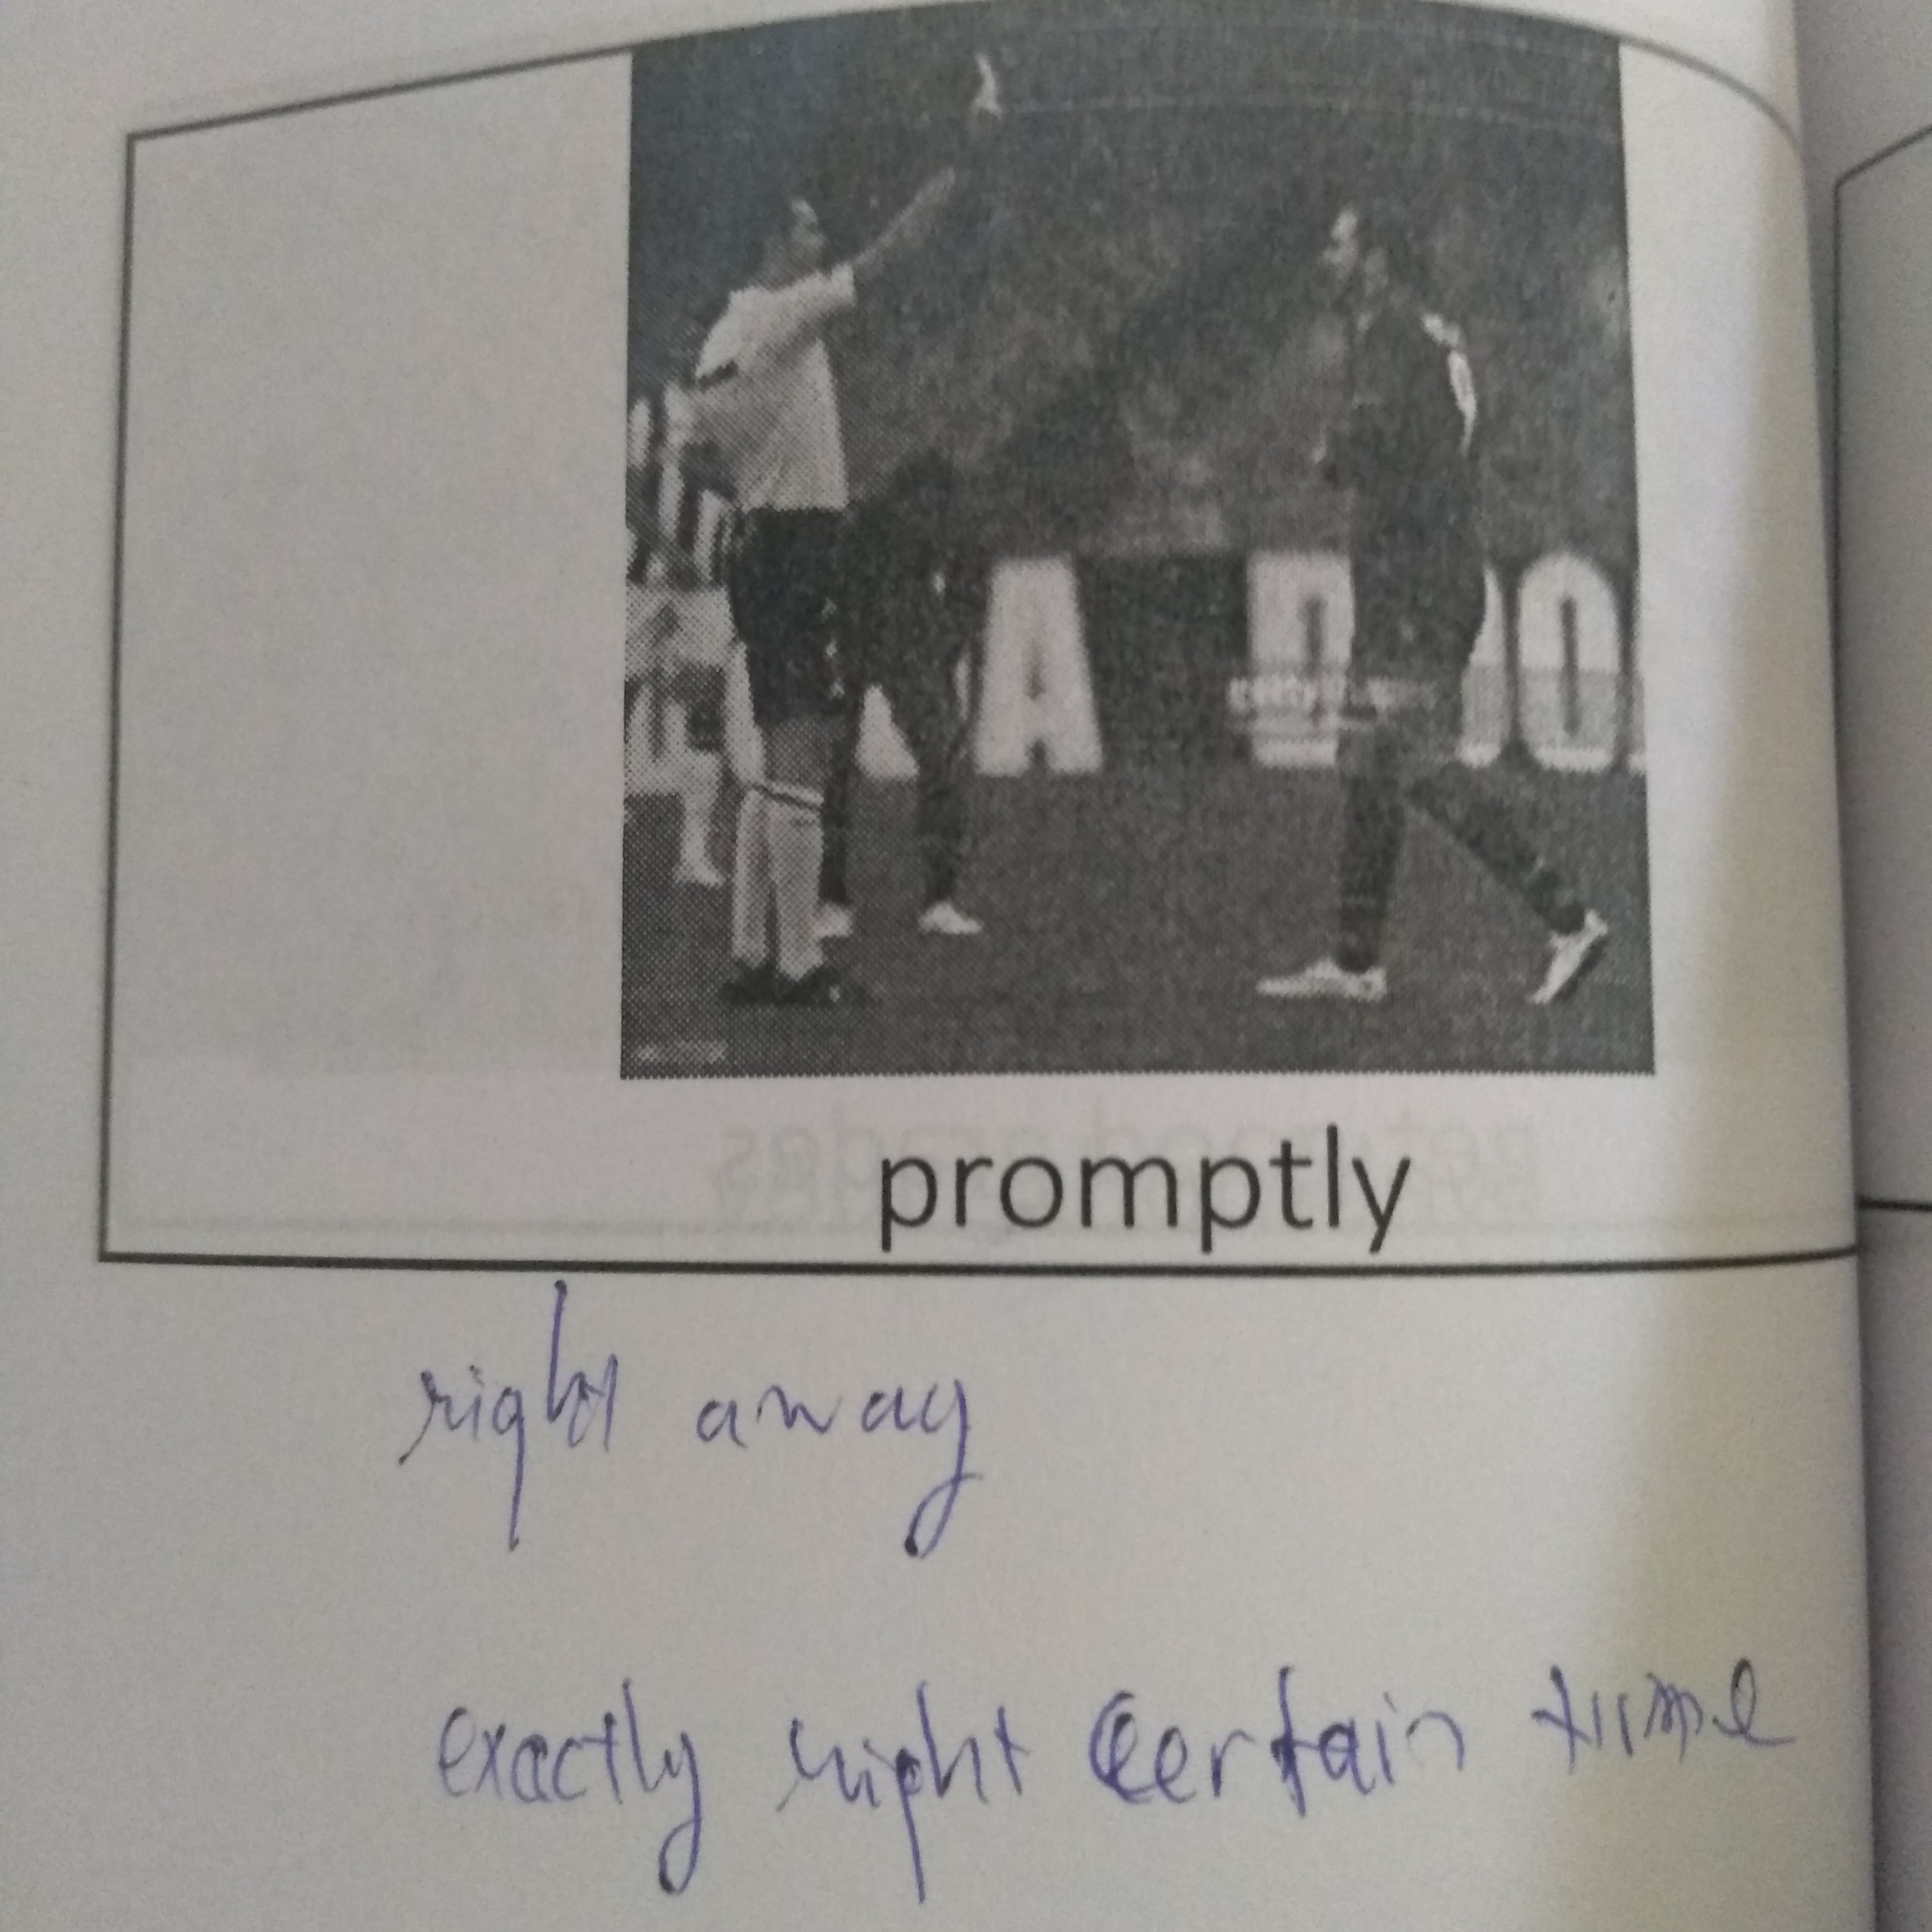 A
promptly
right away
exactly right certain time